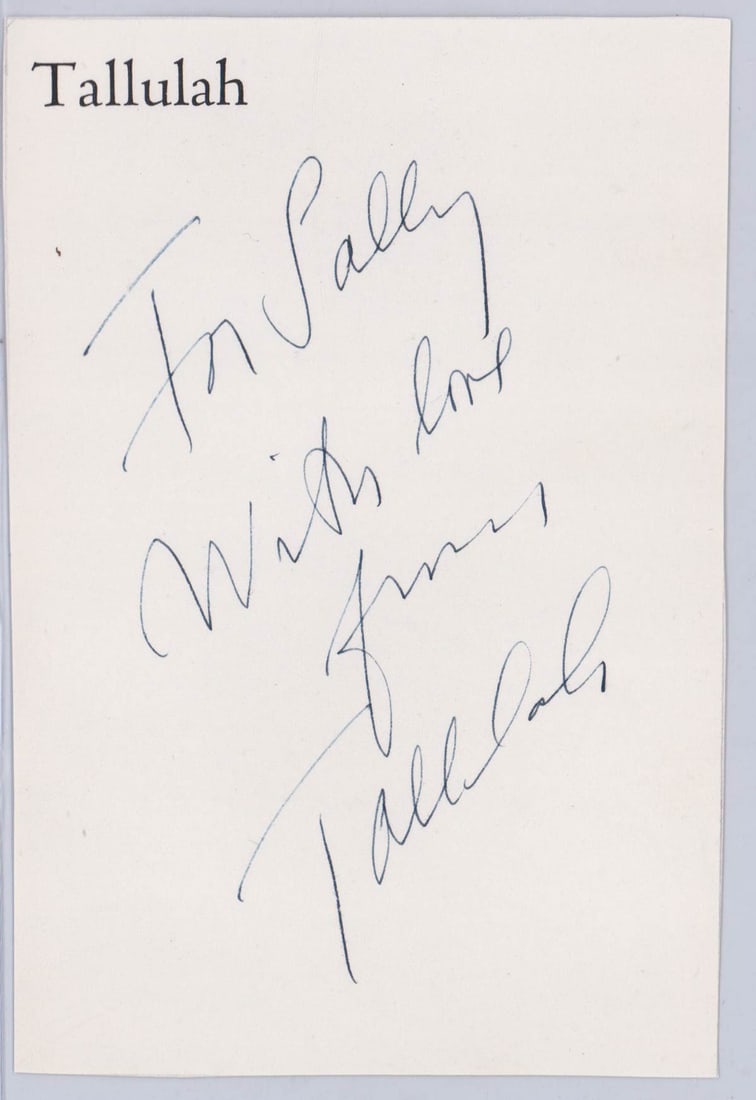 Tallulah
For Sally
With love
from
Tallulah